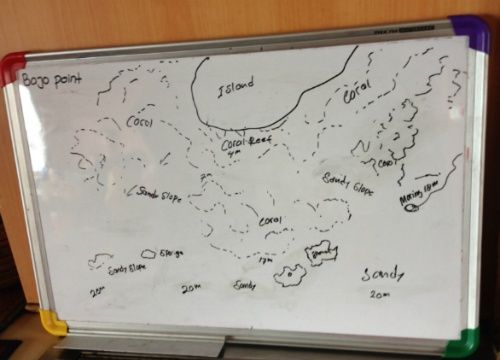 Bojo point
Island
Coral
Coral
Coral Reef
Coral
Sandy Slope
Sandy Slope
Coral
Mooring 18m
17m
Sponge
Sandy Slope
20m
20m
Sandy
Sandy
20m